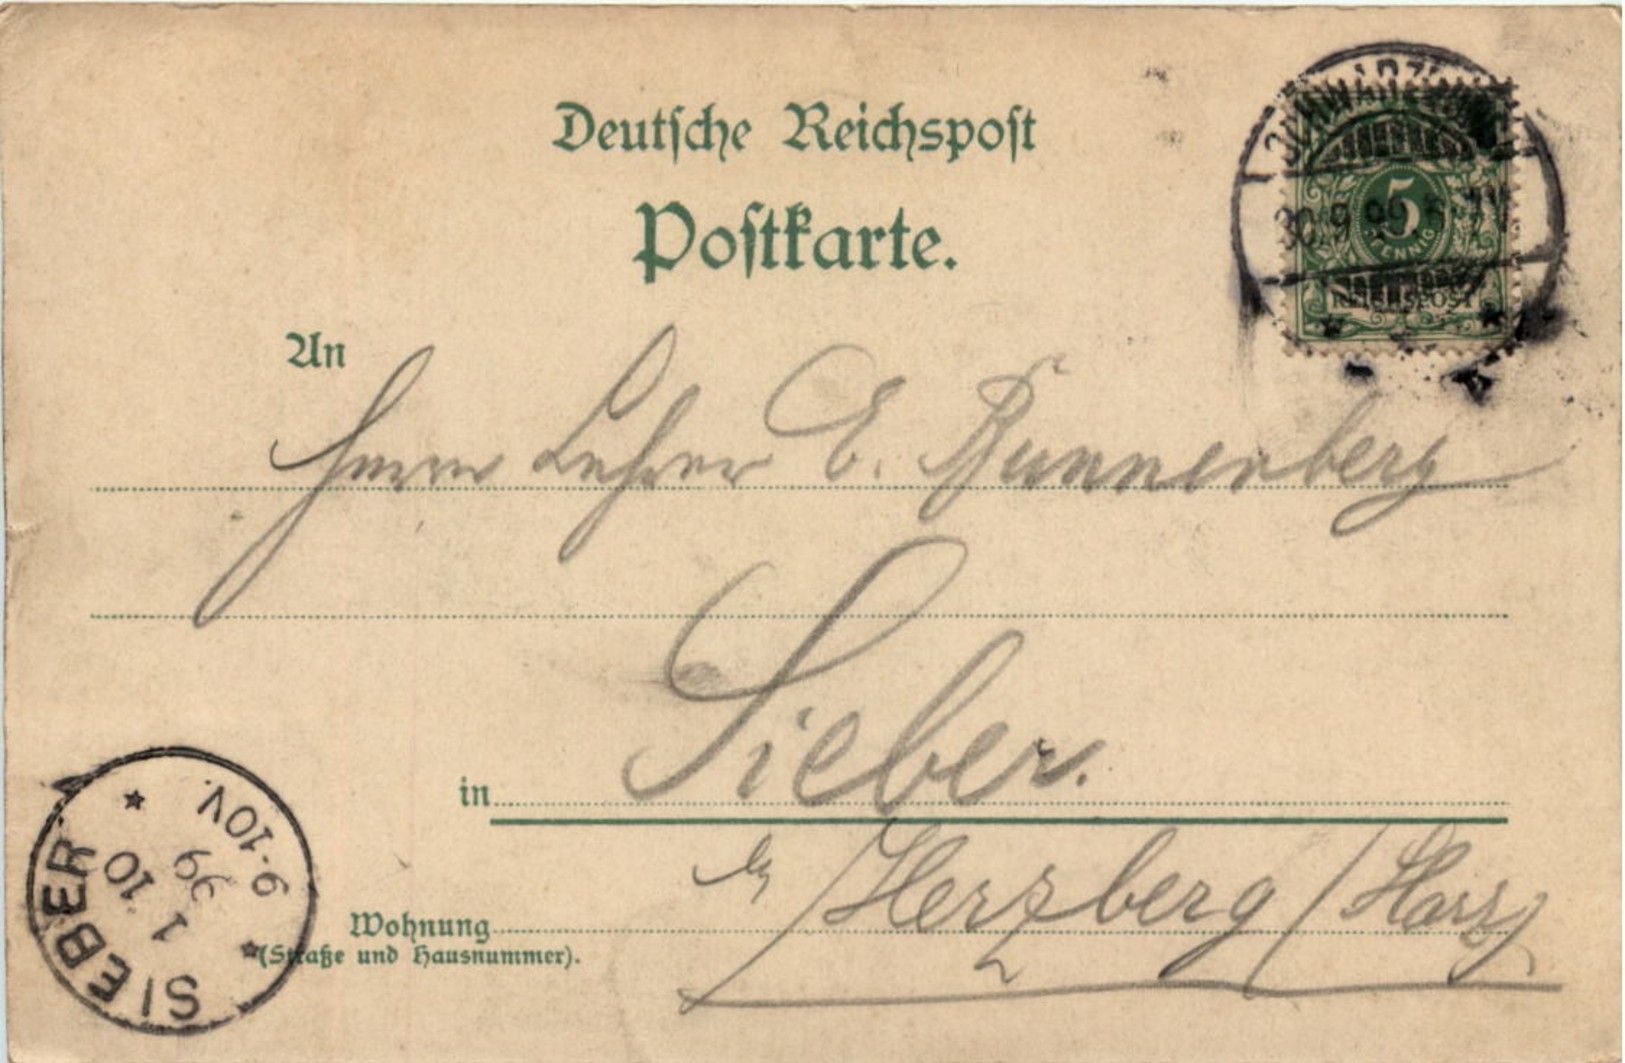 Deutsche Reichspost
Postkarte.
30/9 99
5
PFENNIG
REICHSPOST
An
Herrn Lehrer E. Bunnenberg
in Sieber.
Herzberg / Harz
Wohnung
(Straße und Hausnummer).
SIEBER
1 10
99
9-10V.